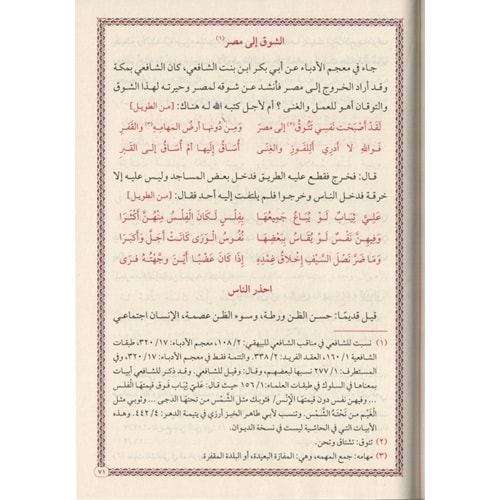 الشوق إلى مصر (١)
جاء في معجم الأدباء عن أبي بكر ابن بنت الشافعي، كان الشافعي بمكة
وقد أراد الخروج إلى مصر فأنشد عن شوقه لمصر وحيرته لهذا الشوق
والتوقان أهو للعمل والغنى؟ أم لأجل كتبه الله له هناك: [من الطويل]
لَقَدْ أَصْبَحَتْ نَفْسِي تَتُوقُ(٢) إلى مصرَ وَمِنْ دُونها أرضُ المهامِهِ(٣) والقَفْرِ
فَواللهِ لَا أدري أَلِلْفَوْزِ والغِنَى أُسَاقُ إِلَيْها أَمْ أُسَاقُ إلى القَبْرِ
قال: فخرج فقطع عليه الطريق فدخل بعض المساجد وليس عليه إلا
خرقة فدخل الناس وخرجوا فلم يلتفت إليه أحد فقال: [من الطويل]
عَلَيَّ ثِيَابٌ لَوْ يُبَاعُ جَمِيعُهَا بِفَلْسٍ لَكَانَ الْفَلْسُ مِنْهُنَّ أَكْثَرَا
وَفِيهِنَّ نَفْسٌ لَوْ يُقَاسُ بِبَعْضِهَا نُفُوسُ الْوَرَى كَانَتْ أَجَلَّ وَأَكْبَرَا
وَمَا ضَرَّ نَصْلَ السَّيْفِ إِخْلَاقُ غِمْدِهِ إِذَا كَانَ عَضْبًا أَيْنَ وَجَّهْتَهُ فَرَى
احذر الناس
قيل قديمًا: حسن الظن ورطة، وسوء الظن عصمة، الإنسان اجتماعي
(١) نسبت للشافعي في مناقب الشافعي للبيهقي: ١٠٨/٢، معجم الأدباء: ٣٢٠/١٧، طبقات
الشافعية ١٦٠/١، العقد الفريد: ٣٣٨/٢. والتتمة فقط في معجم الأدباء: ٣٢٠/١٧، وفي
المستطرف: ٢٧٧/١ نسبها لبعضهم، وقال: وقيل للشافعي. وقد ذكر للشافعي أبيات
بمعناها في السلوك في طبقات العلماء: ١٥٦/١ حيث قال: عَلَيَّ ثِيَابٌ فَوْقَ قيمتها الْفَلْس
... وفيهن نفس دون قيمتها الْإِنْس/ فثوبك مثل الشَّمْس من تحتها الدجى ... وثوبي مثل
الْغَيْم من تَحْتَهُ الشَّمْس. وتنسب لأبي طاهر الخبز أرزي في يتيمة الدهر: ٤٤٢/٤. وهذه
الأبيات التي في الحاشية ليست في نسخة الديوان.
(٢) تتوق: تشتاق وتحن.
(٣) مهامه: جمع المهمه، وهي: المفازة البعيدة، أو البلدة المقفرة.
٧١